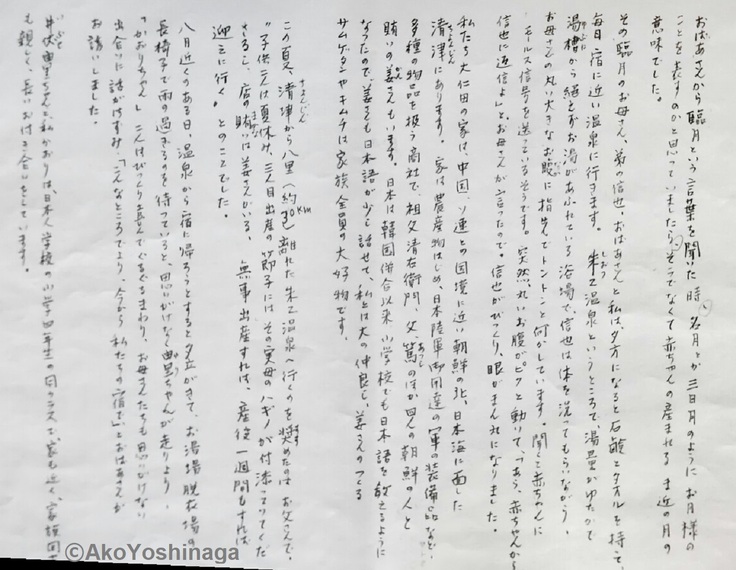 おばあさんから臨月という言葉を聞いた時、名月とか三日月のように お月様の
ことを表すのかと思っていましたら、そうでなくて赤ちゃんの産まれる ま近の月の
意味でした。
その臨月のお母さん、弟の信也、おばあさんと私は、夕方になると石鹸とタオルを持って、
毎日宿に近い温泉に行きます。 朱乙温泉というところで、湯量がゆたかで
しおう
湯槽から絶えずお湯があふれている浴場で、信也は体を洗ってもらいながら、
お母さんの丸い大きなお腹に指先でトントンと何かしています。聞くと赤ちゃんに
モールス信号を送っているそうです。突然、丸いお腹がピクと動いて、「あら、赤ちゃんから
信也に返信よ」と、お母さんが言ったので、信也がびっくり、眼がまん丸になりました。
私たち大仁田の家は、中国、ソ連との国境に近い朝鮮の北、日本海に面した
清津にあります。 家は農産物はじめ、日本陸軍御用達の軍の装備品など、
せいしん
多種の物品を扱う商社で、祖父清右衛門、父、篤のほか四人の朝鮮の人と
あつし
賄いの姜さんもいます。日本は韓国併合以来、小学校でも日本語を教えるように
なったので、姜さんも日本語が少し話せて、私とは大の仲良し、姜さんのつくる
サムゲタンやキムチは家族全員の大好物です。
この夏、清津から八里(約30km)離れた朱乙温泉へ行くのを奨めたのはお父さんで、
"子供二人は夏休み、三人目出産の節子には その実母のハギノが付添っていてくだ
さるし、店の賄いは姜さんがいる、 無事出産すれば、産後一週間もすれば
迎えに行く"とのことでした。
八月近くのある日、温泉から宿に帰ろうとすると夕立がきて、お湯場の脱衣場の
長椅子で雨の過ぎるのを待っていると、思いがけなく由里ちゃんが走りより、
「かおりちゃん」 二人はびっくり喜んでぐるぐるまわり、お母さんたちも思いがけない
出会いに話がはずみ、「こんなところでより、今から私たちの宿で」とおばあさんが
お誘いしました。
由里ちゃんと私かおりは、日本人学校の小学四年生の同クラスで、家も近く、家族同士
も親しく、長いお付き合いをしています。
©AkoYoshinaga